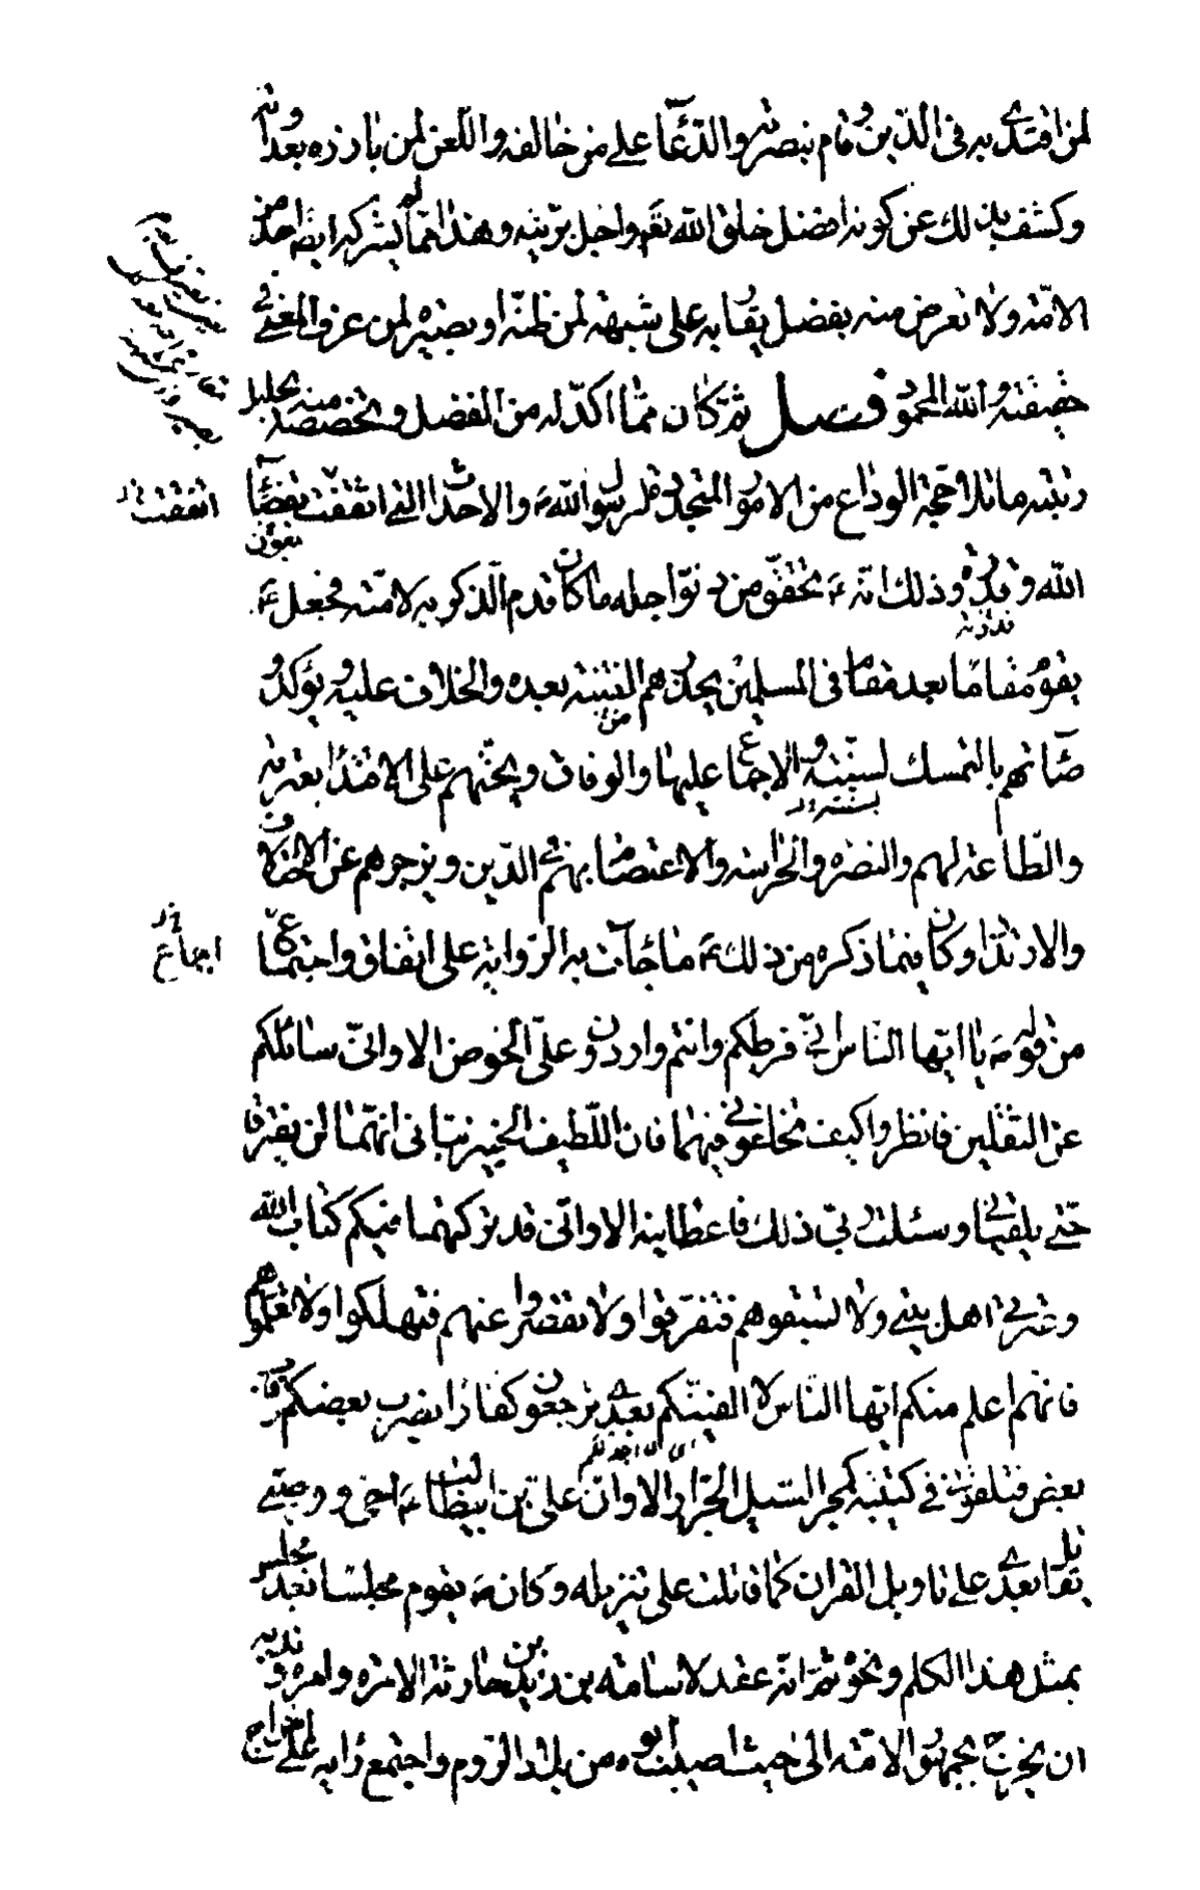 لمن اقتدى به في الدين وقام بنصرته والدعاء على من خالفه واللعن لمن بارزه بعداوته
وكشف بذلك عن كونه افضل خلق الله تعم واجل بريته وهذا مما لم يشركه ايضا احد من
الامة ولا تعرض منه بفضل يقاربه على شبهة لمن ظنه او بصيرة لمن عرف المعنى في
حقيقته والله المحمود فصل ثم كان مما اكد له من الفضل وتخصصه منه بجليل
رتبته ما تلا حجة الوداع من الامور المتجددة لرسول الله ص والاحداث التي اتفقت بقضاء
الله وقدره وذلك انه ع تحقق من دنو اجله ما كان قدم الذكر به لامته فجعل ع
يقوم مقاما بعد مقام في المسلمين يحذرهم الفتنة بعده والخلاف عليه ويؤكد
وصاتهم بالتمسك بسنته والاجماع عليها والوفاق ويحثهم على الاقتداء بعترته
والطاعة لهم والنصرة والحراسة والاعتصام بهم في الدين ويزجرهم عن الاختلاف
والارتداد وكان فيما ذكره من ذلك ع ما جاءت به الرواية على اتفاق واجتماع
من قوله ص يا ايها الناس اني فرطكم وانتم واردون علي الحوض الا واني سائلكم
عن الثقلين فانظروا كيف تخلفوني فيهما فان اللطيف الخبير نباني انهما لن يفترقا
حتى يلقياني وسئلت ربي ذلك فاعطانيه الا واني قد تركتهما فيكم كتاب الله
وعترتي اهل بيتي ولا تسبقوهم فتفرقوا ولا تقصروا عنهم فتهلكوا ولا تعلموهم
فانهم اعلم منكم ايها الناس لا الفينكم بعدي ترجعون كفارا يضرب بعضكم رقاب
بعض فتلقوني في كتيبة كمجر السيل الجرار الا وان علي بن ابيطالب ع اخي ووصيي
يقاتل بعدي على تاويل القران كما قاتلت على تنزيله وكان ص يقوم مجلسا بعد مجلس
بمثل هذا الكلم ونحوه ثم انه عقد لاسامة بن زيد بن حارثة الامرة وامره وندبه
ان يخرج بجمهور الامة الى حيث اصيب ابوه من بلاد الروم واجتمع رايه ع على اخراج
اتفقت
اجماع